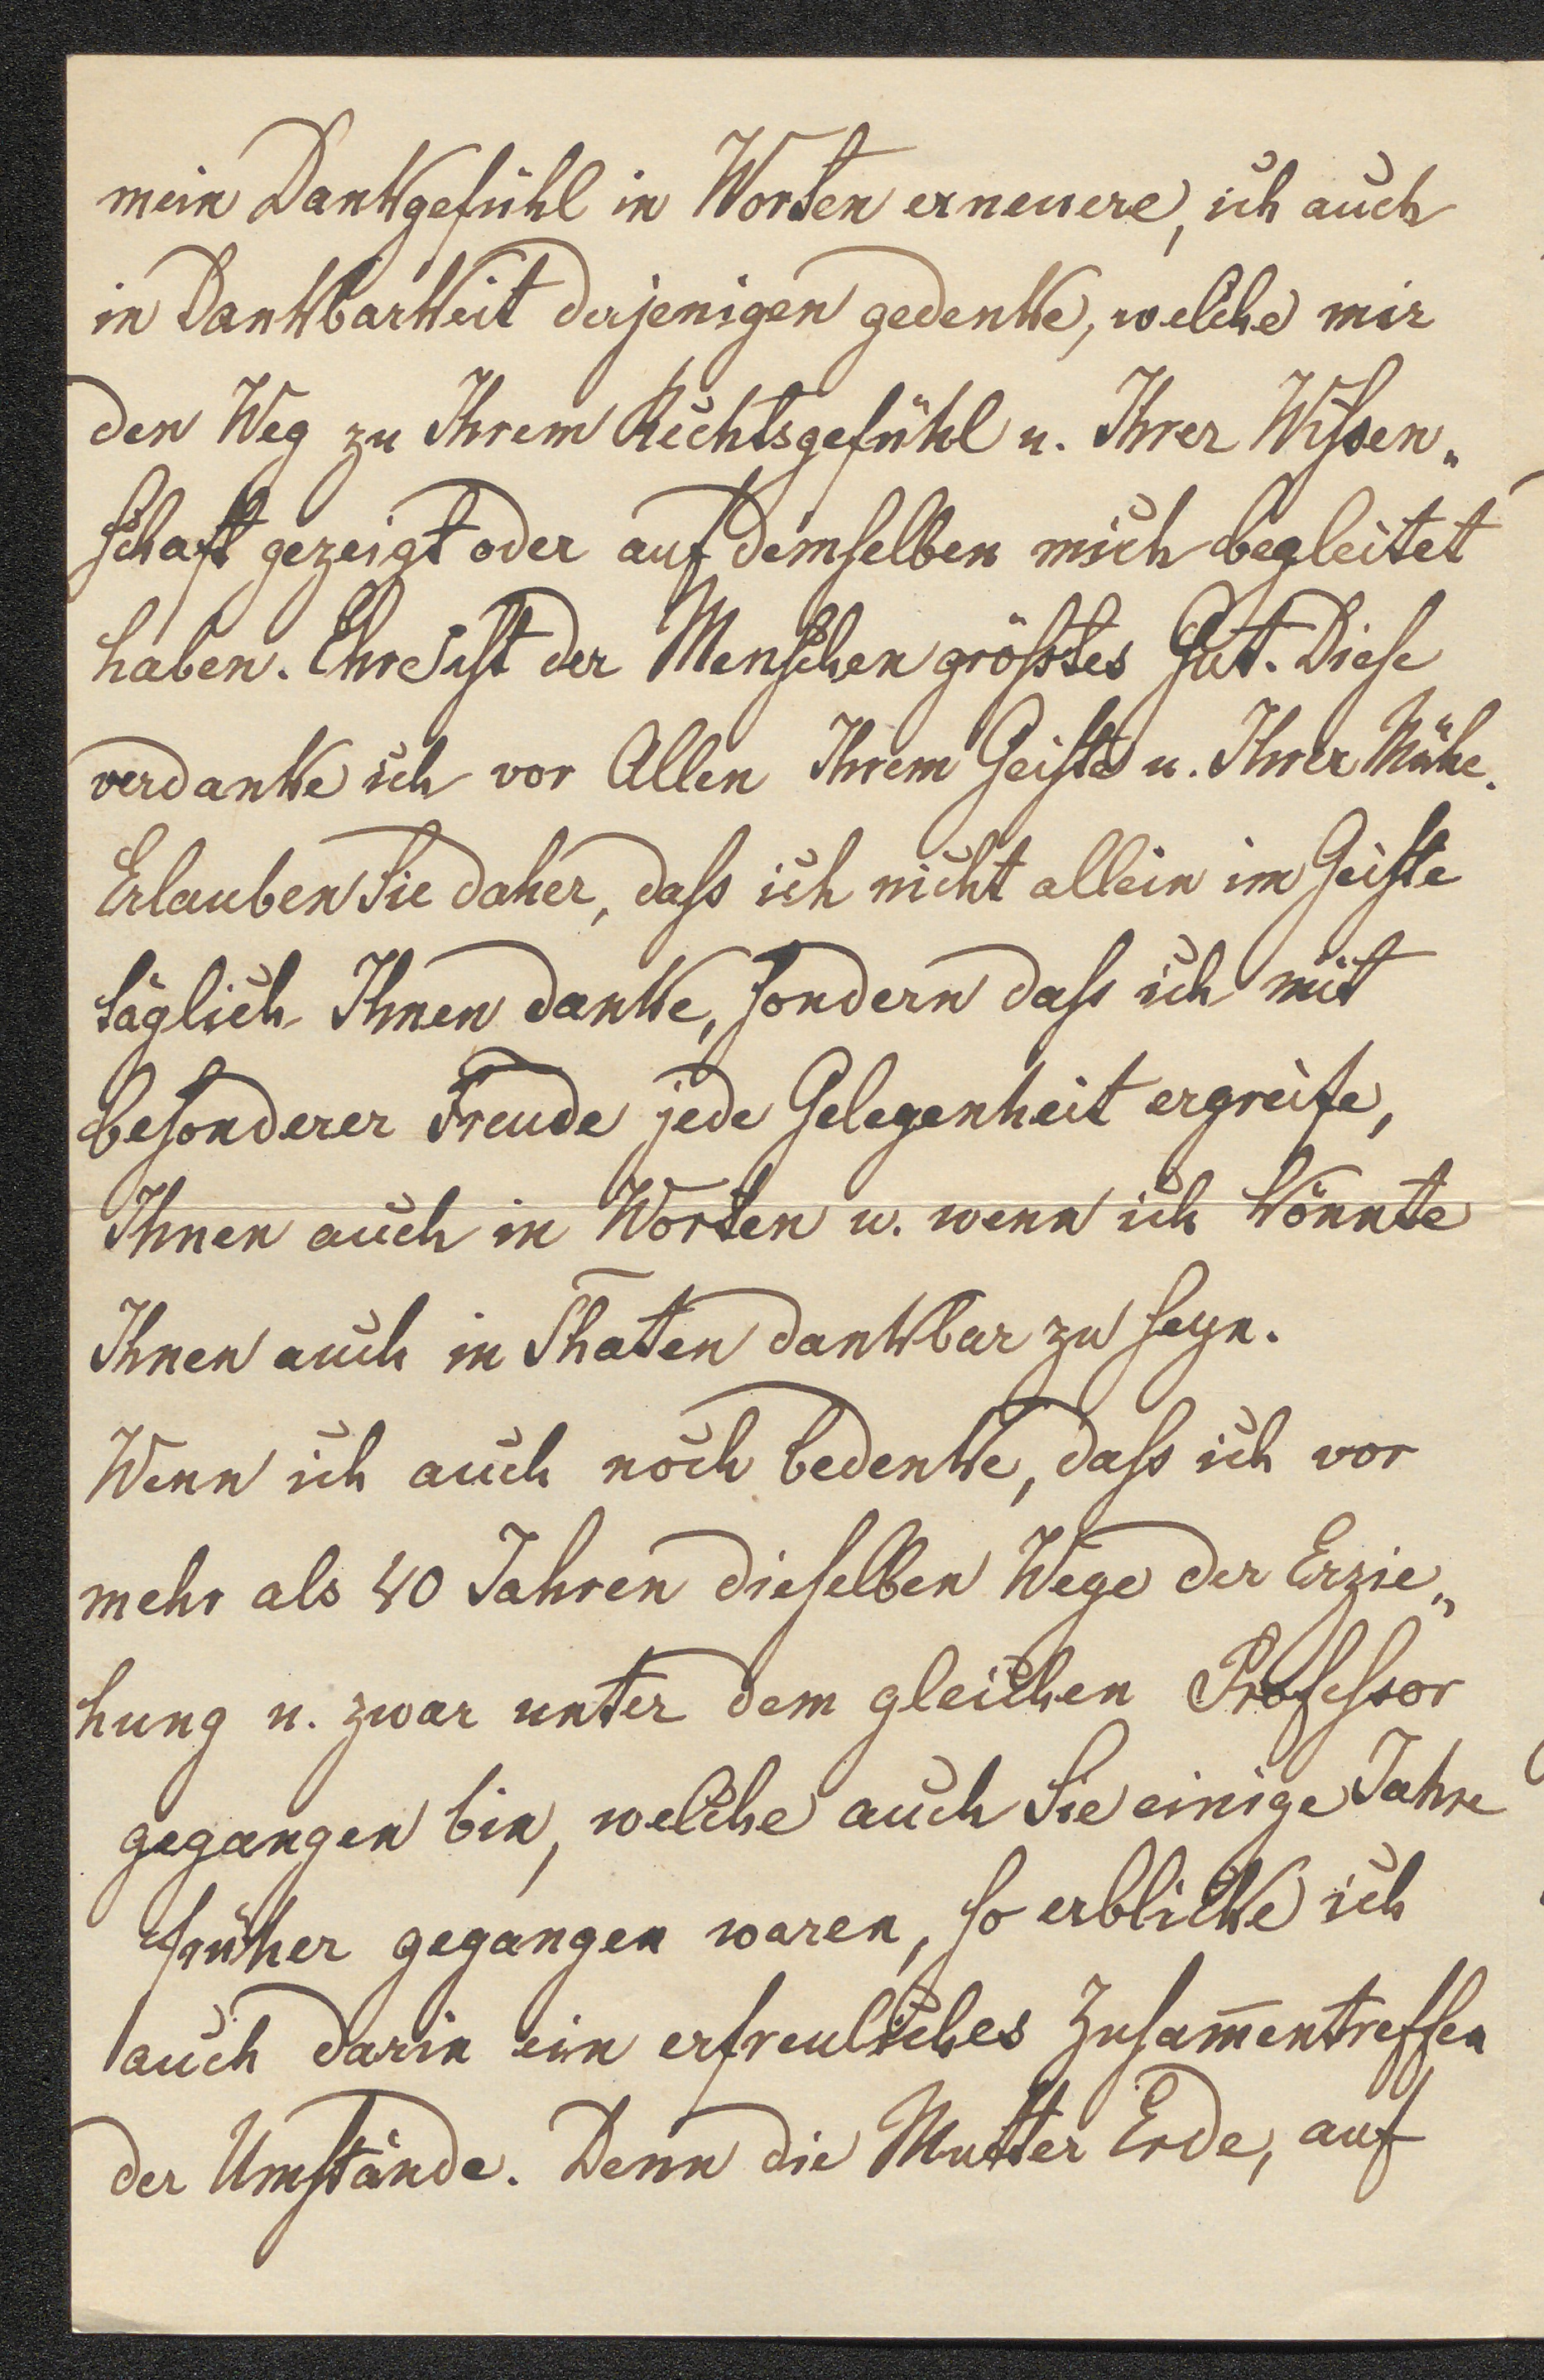 mein Dankgefühl in Worten erneuere, ich auch
in Dankbarkeit derjenigen gedenke, welche mir
den Weg zu Ihrem Rechtsgefühl u. Ihrer Wissen„
schaft gezeigt oder auf demselben mich begleitet
haben. Ehre ist der Menschen größtes Gut. Diese
verdanke ich vor Allen Ihrem Geiste u. Ihrer Mühe.
Erlauben Sie daher, dass ich nicht allein im Geiste
täglich Ihnen danke, sondern dass ich mit
besonderer Freude jede Gelegenheit ergreife,
Ihnen auch in Worten u. wenn ich könnte
Ihnen auch in Thaten dankbar zu seyn.
Wenn ich auch noch bedenke, dass ich vor
mehr als 40 Jahren dieselben Wege der Erzie„
hung u. zwar unter dem gleichen Professor
gegangen bin, welche auch Sie einige Jahre
früher gegangen waren, so erblicke ich
auch darin ein erfreuliches Zusam̄entreffen
der Umstände. Denn die Mutter Erde, auf